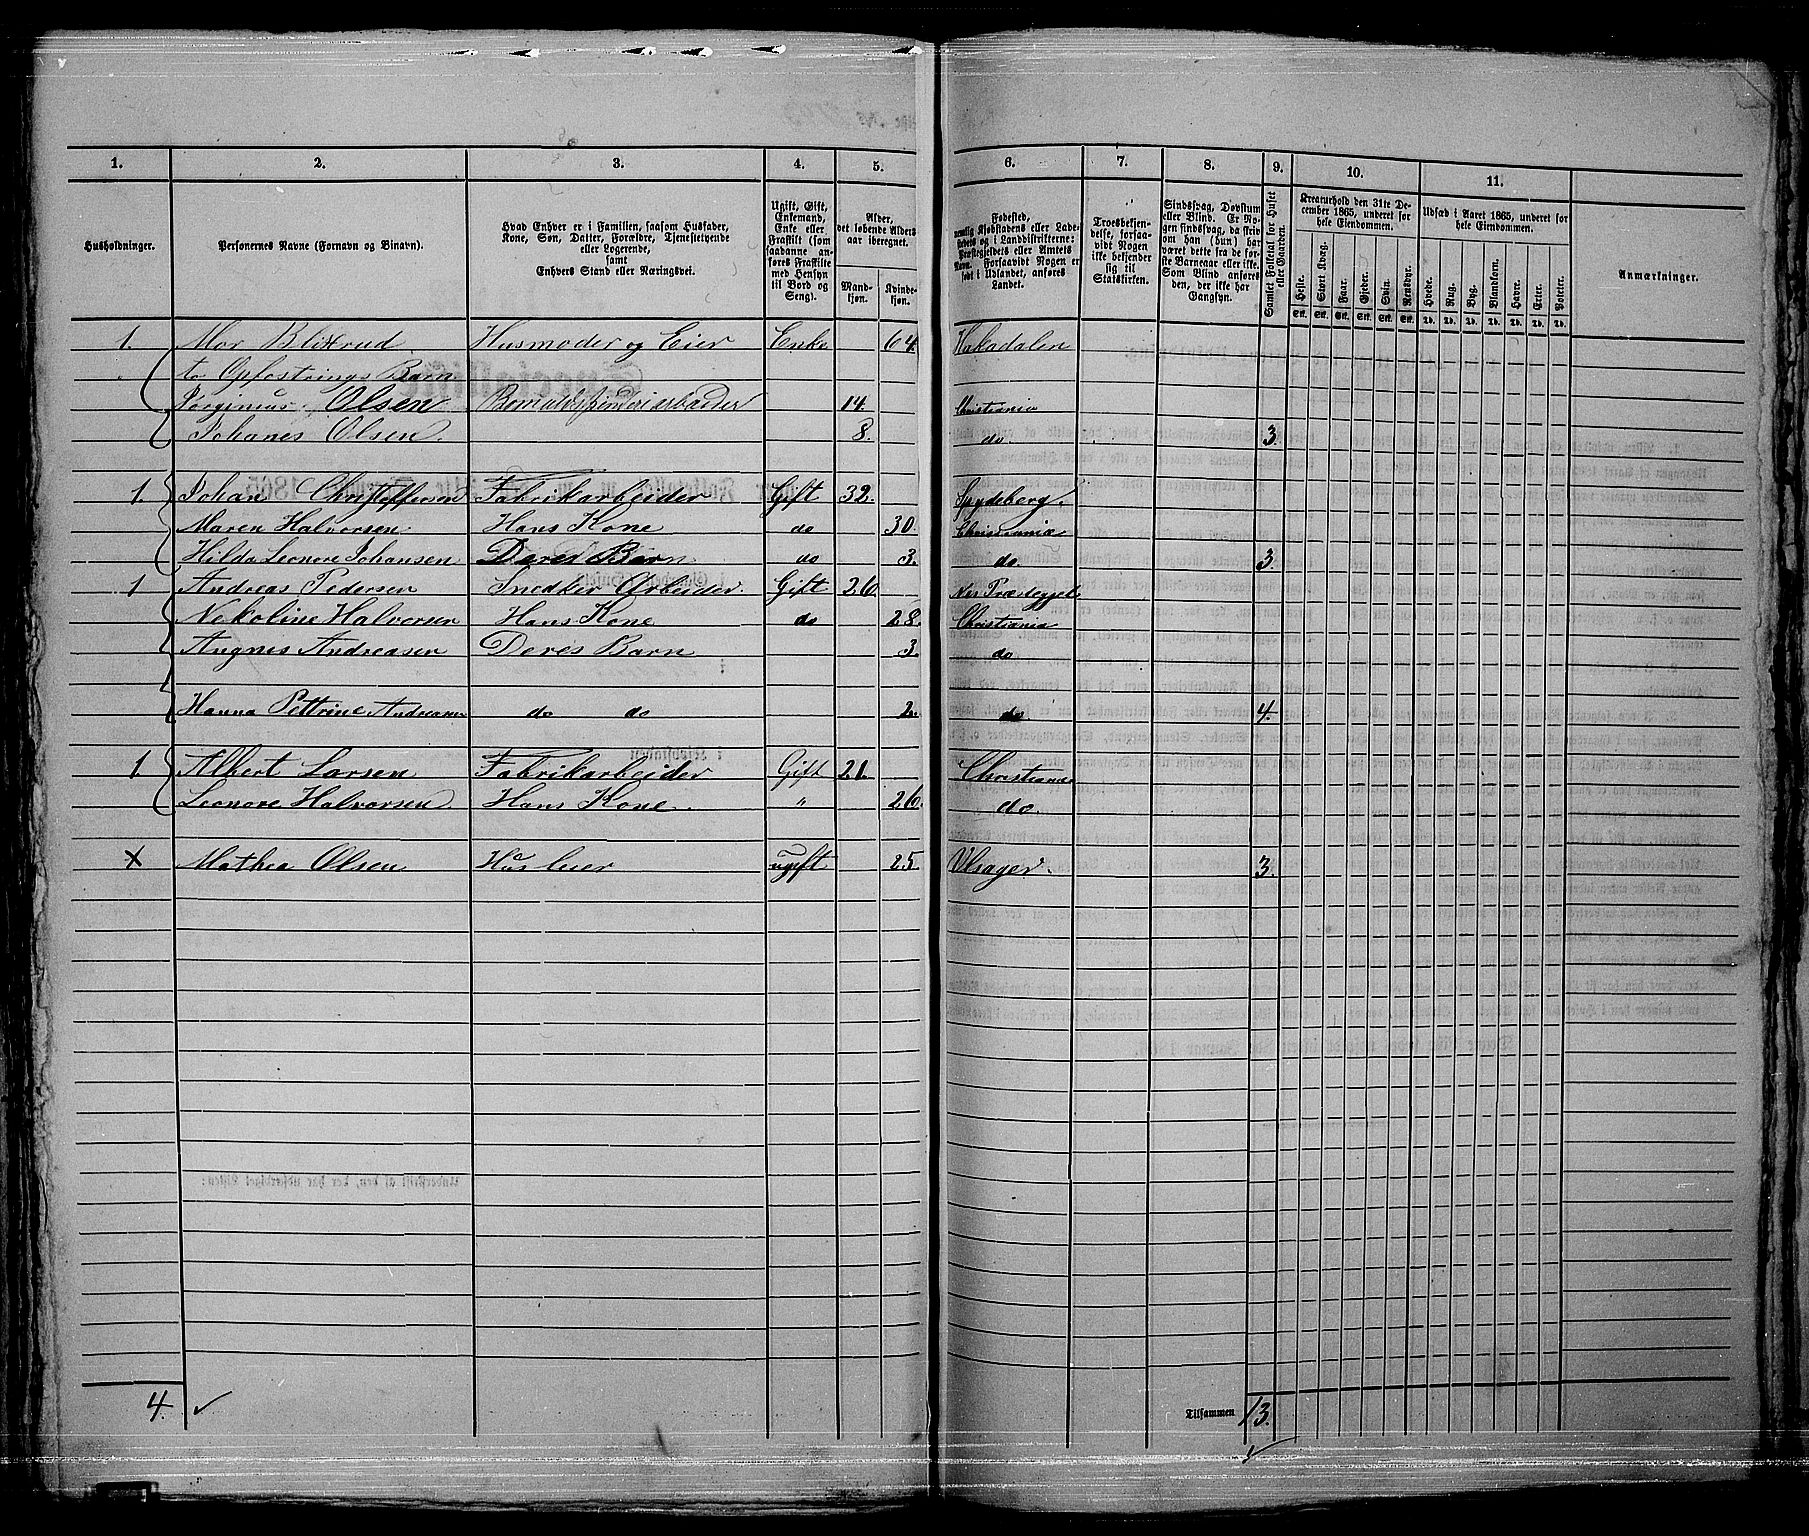 1. 2. 3. 4. 5. 6. 7. 8. 9. 10. 11.
Husholdninger.
Personernes Navne (Fornavn og Binavn).
Hvad Enhver er i Familien, saasom Husfader,
Kone, Søn, Datter, Forældre, Tjenestetyende
eller Logerende,
samt
Enhvers Stand eller Næringsvei.
Ugift, Gift,
Enkemand,
Enke eller
Fraskilt (som
saadanne an-
føres Fraskilte
med Hensyn
til Bord og
Seng).
Alder,
det løbende Alders-
aar iberegnet.
Mand-
kjøn.
Kvinde-
kjøn.
Fødested,
nemlig Kjøbstadens eller Lade-
stedets og i Landdistrikterne:
Præstegjeldets eller Amtets
Navn. Forsaavidt Nogen er
født i Udlandet, anføres
Landet.
Troesbekjen-
delse, forsaa-
vidt Nogen
ikke bekjender
sig til
Statskirken.
Sindssvag, Døvstum
eller Blind. Er No-
gen sindssvag, da skriv
om han (hun) har
været dette fra de før-
ste Barneaar eller ikke.
Som Blind anføres
den, der ikke har
Gangsyn.
Samlet Folketal for Huset
eller Gaarden.
Kreaturhold den 31te De-
cember 1865, underet for
hele Eiendommen.
Heste. Stort Kvæg. Faar. Gjeder. Svin. Rensdyr.
Stk. Stk. Stk. Stk. Stk. Stk.
Udsæd i Aaret 1865, underet for
hele Eiendommen.
Hvede. Rug. Byg. Blandkorn. Havre. Erter. Poteter.
Td. Td. Td. Td. Td. Td. Td.
Anmærkninger.
1. Mor Blixrud Husmoder og Eier Enke 64. Hakadalen
to Opfostrings Barn
Jørginius Olsen 14. Christiania
Johanes Olsen. 8. do 3.
1. Johan Christoffersen Fabrikarbeider Gift 32. Spydeberg.
Maren Halvorsen Hans Kone do 30. Christiania
Hilda Leonore Johansen Deres Barn do 3. do 3.
1 Andreas Pedersen Snedker Arbeider. Gift 26. Nes Præsteggel
Nekoline Halvorsen Hans Kone do 28. Christiania
Angnes Andreasen Deres Barn 3. do
Hanna Pettrine Andreasen do do 2. do 4.
1. Albert Larsen Fabrikarbeider Gift 21. Christiania
Leonore Halvorsen Hans Kone. " 26. do.
X Mathea Olsen Husleier ugift 25. Ulsager. 3.
4. ✓ Tilsammen 13.
✓